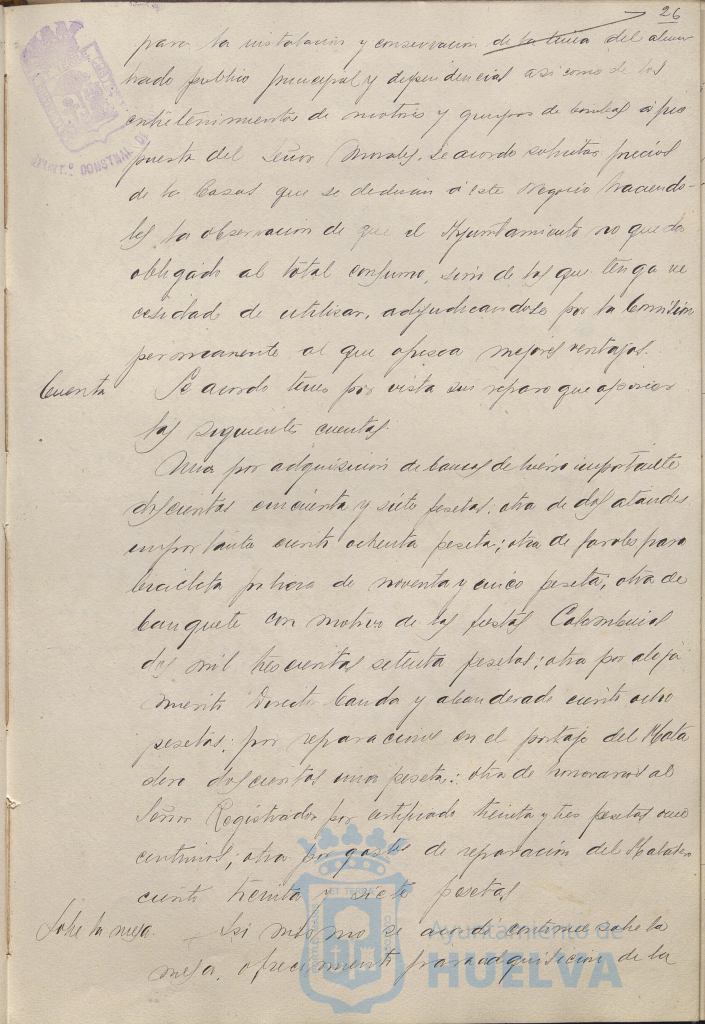 26
para la instalacion y conservacion de la linea del alum-
brado publico principal y dependencias asi como de los
entretenimientos de motores y grupos de bombas a pro
puesta del Señor Morales, se acordo solicitar precios
de la Casas que se dedican a este Negocio haciendo-
les la observacion de que el Ayuntamiento no queda
obligado al total consumo, sino de los que tenga ne
cesidad de utilizar, adjudicandose por la Comision
permanente al que ofrezca mejores ventajas.
Cuenta Se acordo tener por vista sin reparo que
las siguientes cuentas.
Una por adquisicion de bancos de hierro importante
doscientas cincuenta y siete pesetas, otra de dos ataudes
importante ciento ochenta peseta; otra de faroles para
bicicleta de noventa y cinco peseta; otra de
banquete con motivo de las fiestas Colombinas
dos mil trescientas setenta pesetas; otra por aloja
miento Director banda y abanderado ciento ocho
pesetas; por reparaciones en el portaje del Mata
dero doscientas una peseta; otra de honorarios al
Señor Registrador por certificado treinta y tres pesetas once
centimos; otra por gastos de reparacion del Matadero
ciento treinta y siete pesetas
Sobre la mesa. Asi mismo se acordo continue sobre la
mesa, ofrecimiento para adquisicion de la
Ayuntamiento de
HUELVA